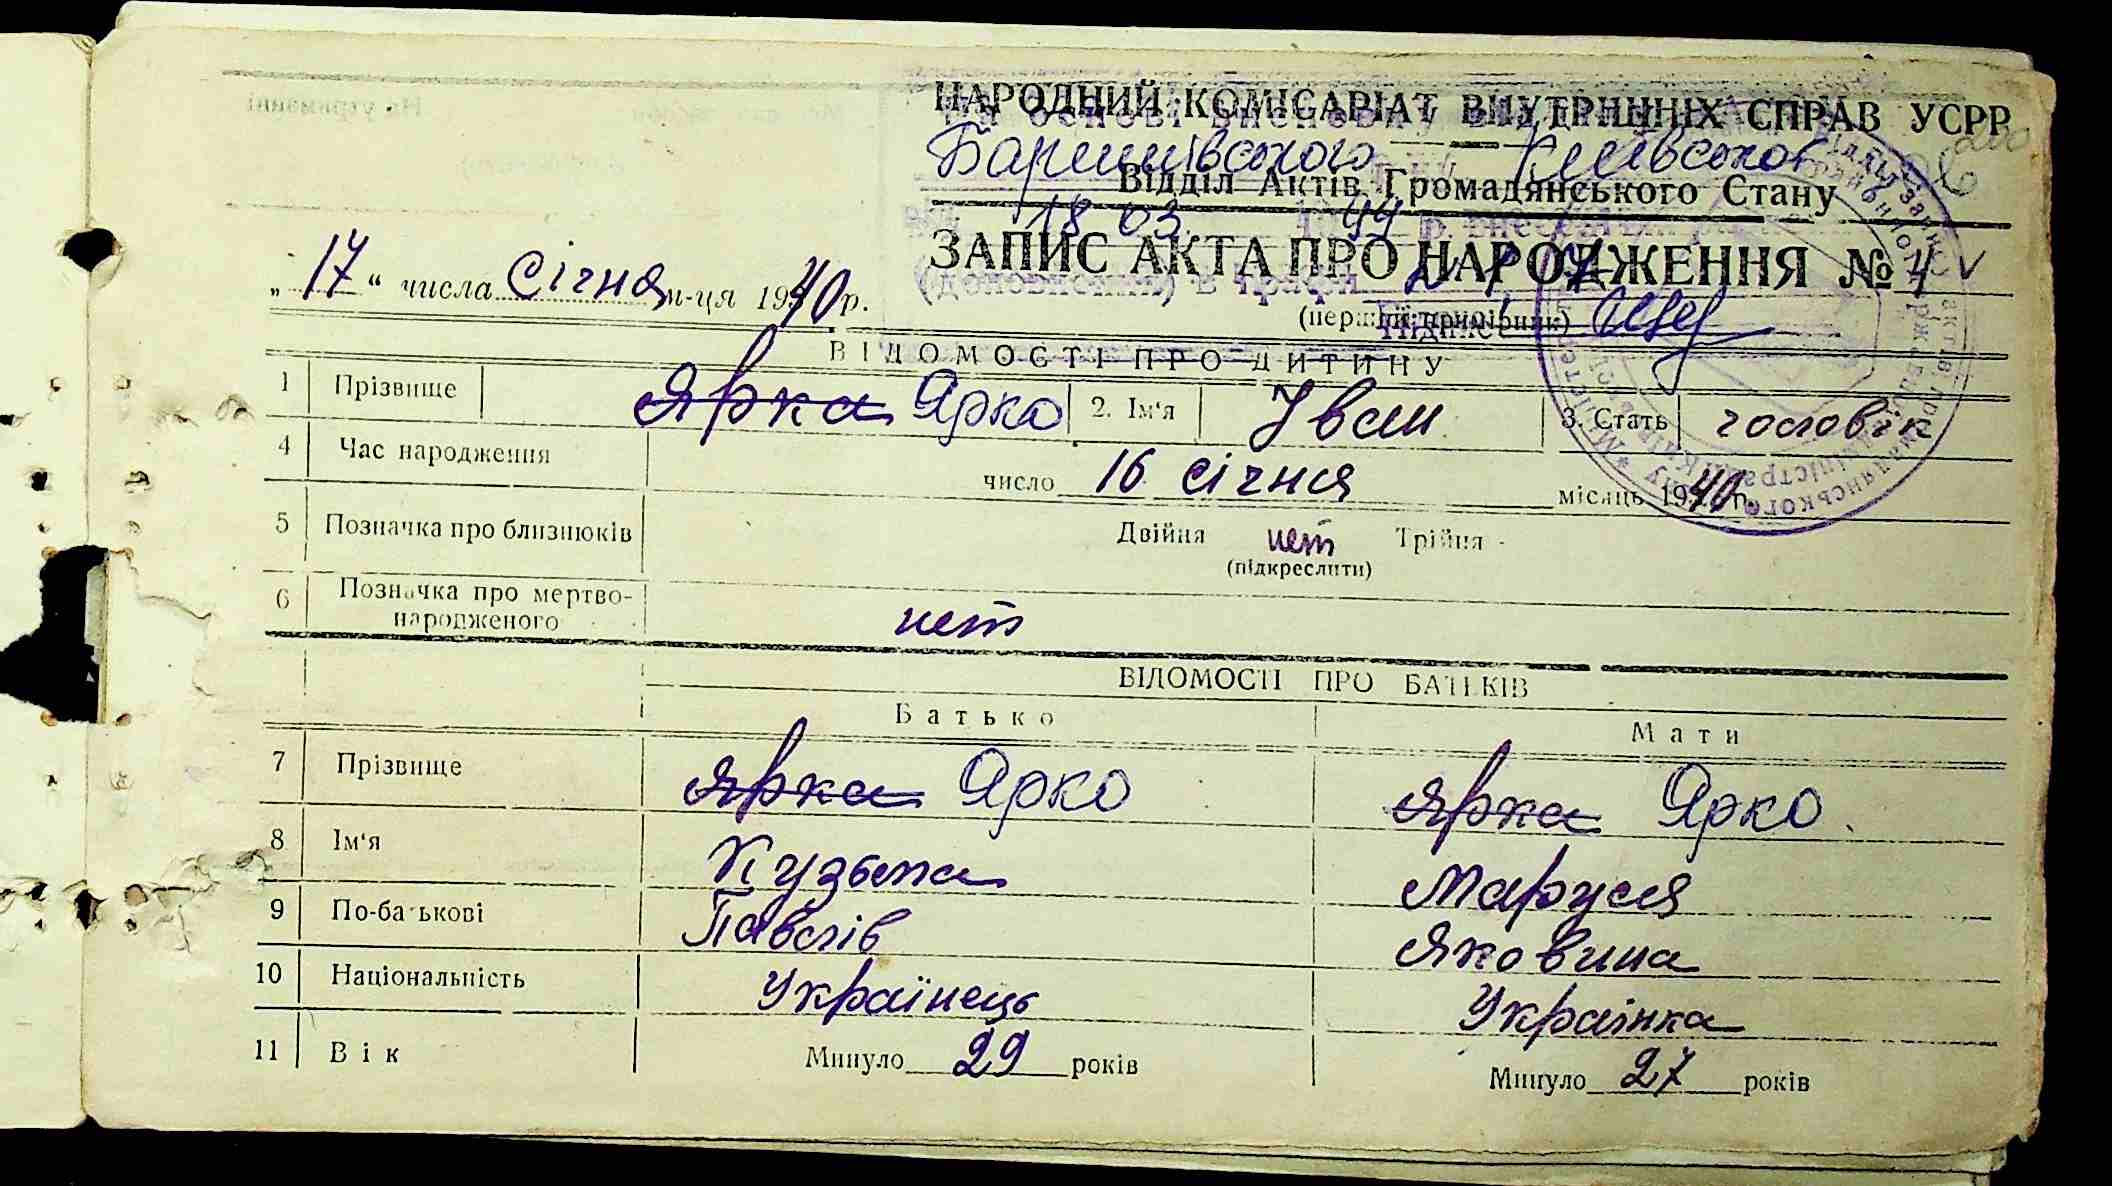 НАРОДНИЙ КОМІСАРІАТ ВНУТРІШНІХ СПРАВ УСРР
Баришівського Київської
Відділ Актів Громадянського Стану
18 03. 99 р.
ЗАПИС АКТА ПРО НАРОДЖЕННЯ № 4
„17“ числа Січня м-ця 1940 р.
ВІДОМОСТІ ПРО ДИТИНУ
1 Прізвище Ярка Ярко 2. Ім‘я Іван 3. Стать чоловік
4 Час народження число 16 січня місяць 1940 р.
5 Позначка про близнюків Двійня нет Трійня
(підкреслити)
6 Позначка про мертво-
народженого нет
ВІДОМОСТІ ПРО БАТЬКІВ
Батько Мати
7 Прізвище Ярка Ярко Ярка Ярко
8 Ім‘я Кузьма Маруся
9 По-батькові Павлів Яковина
10 Національність Українець Українка
11 Вік Минуло 29 років Минуло 27 років